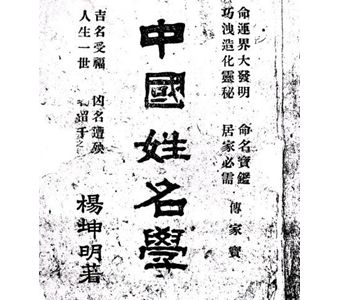 命運界大發明 命名寶鑑
巧洩造化靈秘 居家必需
傳家寶
中國姓名學
吉名受福 凶名遭殃
人生一世 留千
楊坤明著